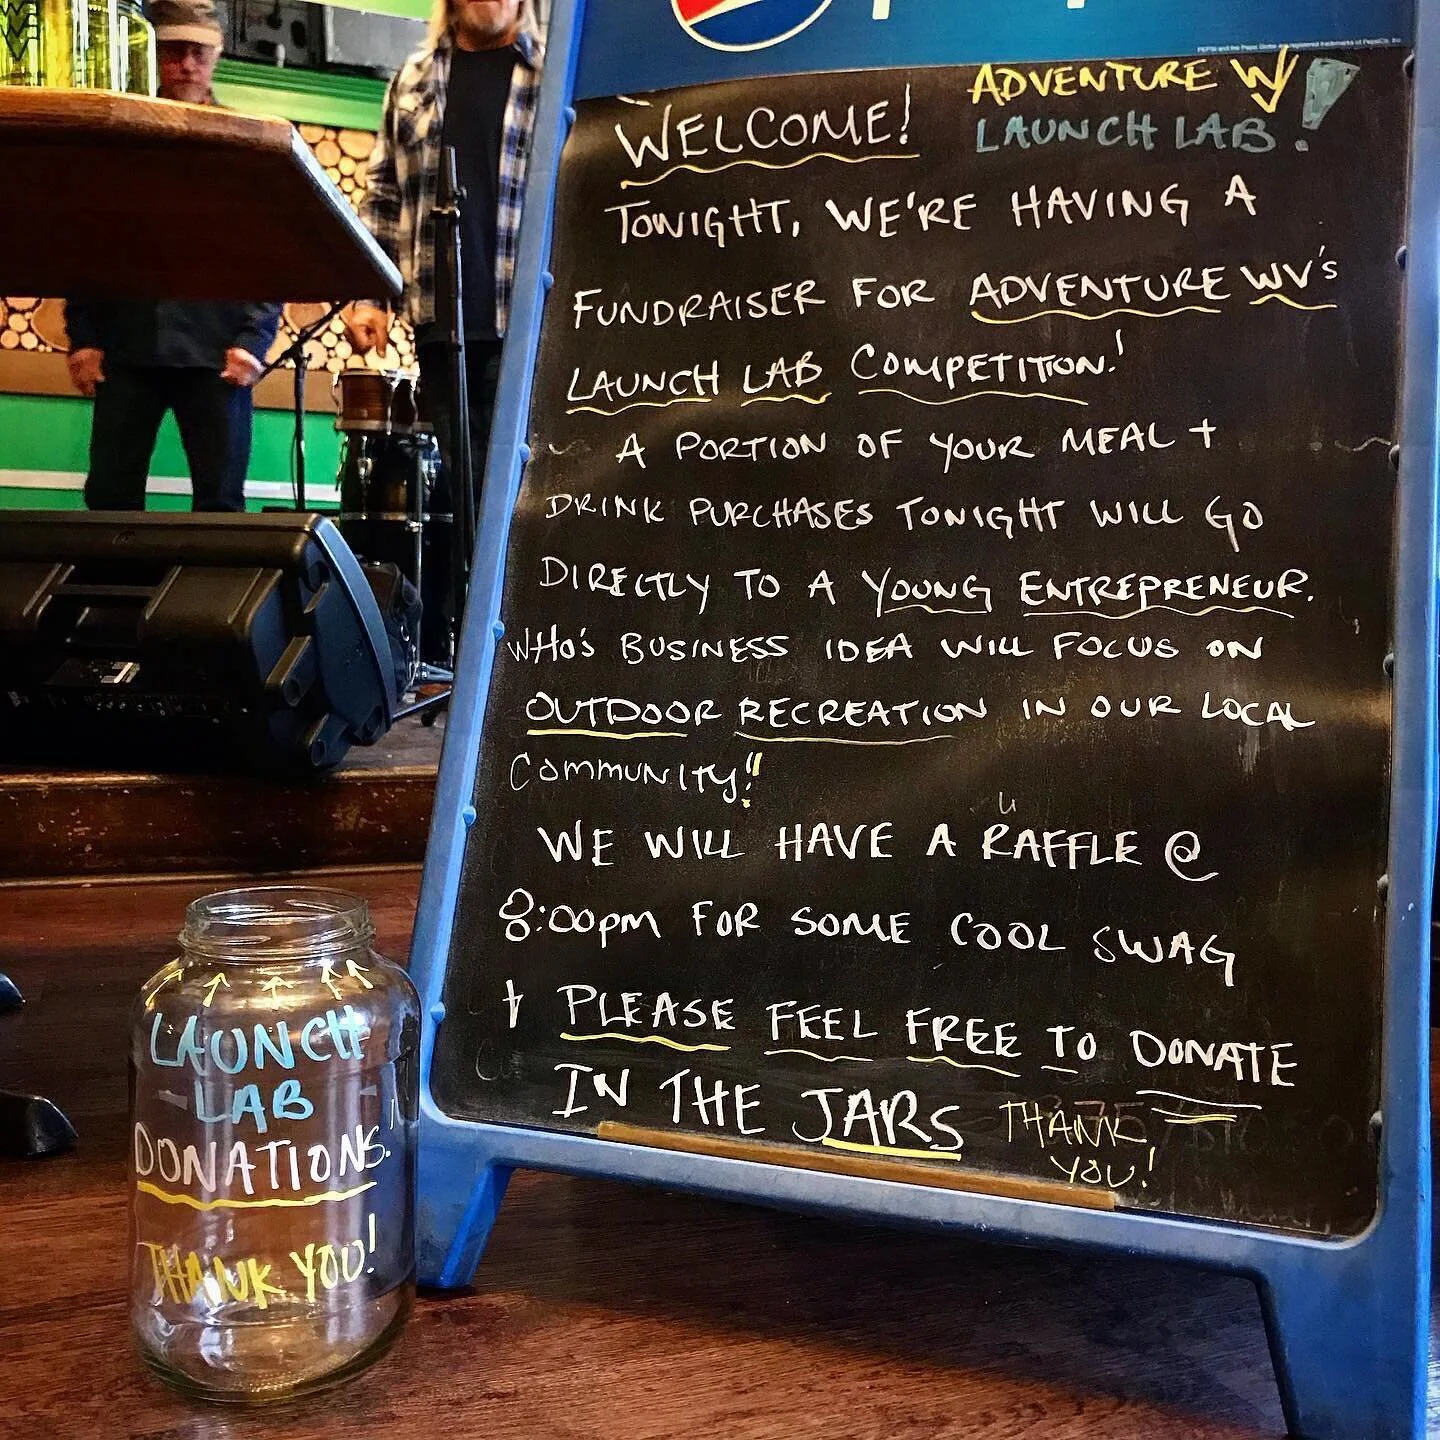 WELCOME!
ADVENTURE WV
LAUNCH LAB!
TONIGHT, WE'RE HAVING A
FUNDRAISER FOR ADVENTURE WV's
LAUNCH LAB COMPETITION!
A PORTION OF YOUR MEAL +
DRINK PURCHASES TONIGHT WILL GO
DIRECTLY TO A YOUNG ENTREPRENEUR.
WHO's BUSINESS IDEA WILL FOCUS ON
OUTDOOR RECREATION IN OUR LOCAL
COMMUNITY!!
WE WILL HAVE A RAFFLE @
8:00pm FOR SOME COOL SWAG
+ PLEASE FEEL FREE TO DONATE
IN THE JARS THANK
YOU!
LAUNCH
LAB
DONATIONS!
THANK YOU!